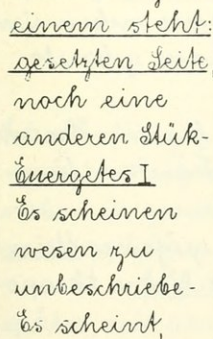 einem steht:
gesetzten Seite
noch eine
anderen Stük-
Euergetes I
Es scheinen
wesen zu
unbeschriebe-
Es scheint,